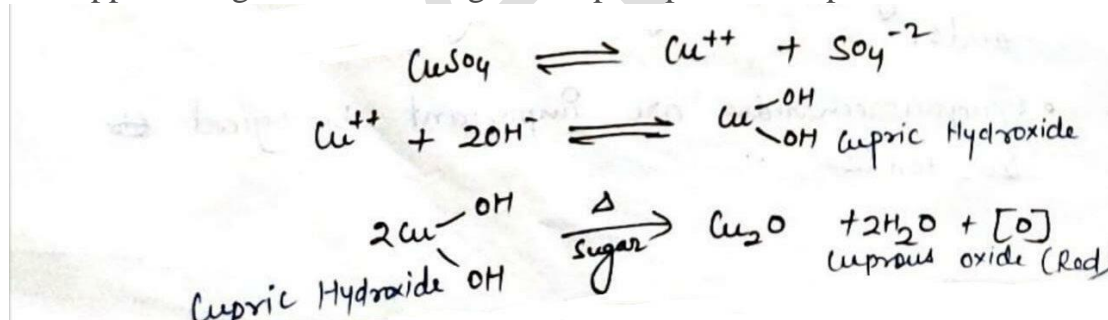 CuSO4 ⇌ Cu++ + SO4-2
Cu++ + 2OH- ⇌ Cu OH OH Cupric Hydroxide
2Cu OH OH Δ Sugar → Cu2O + 2H2O + [O]
Cupric Hydroxide cuprous oxide (Red)